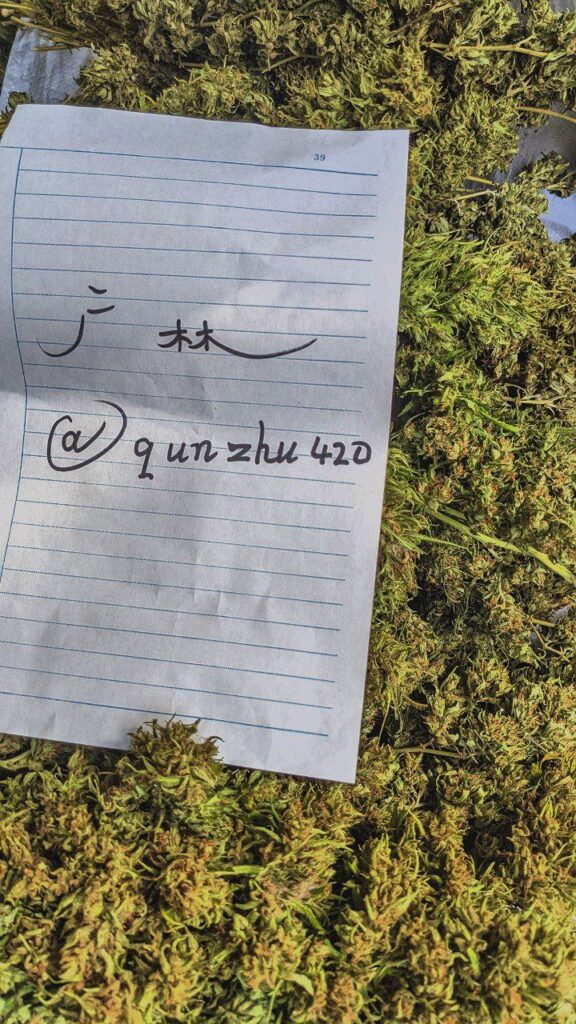 39
广林
@qunzhu420